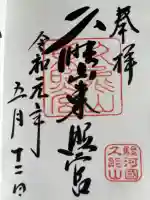 奉拝
久能山東照宮
令和元年
五月十二日
久能山
駿河國
久能山